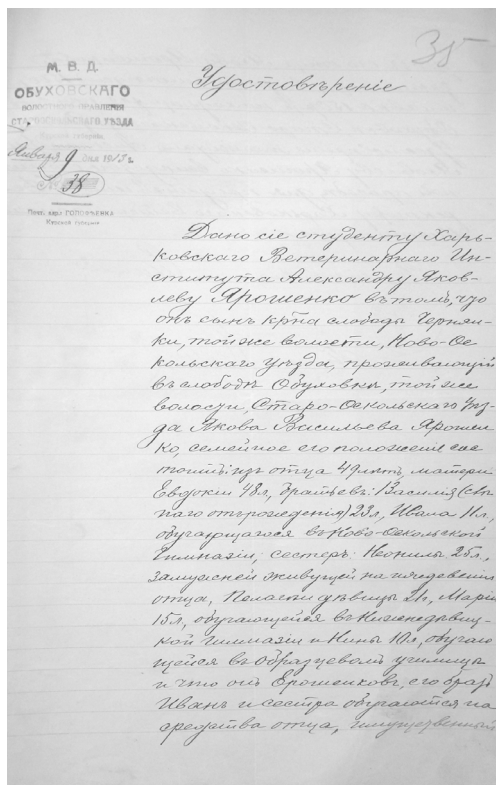 35
М. В. Д.
ОБУХОВСКАГО
ВОЛОСТНОГО ПРАВЛЕНІЯ
СТАРООСКОЛЬСКАГО УѢЗДА
Января 9 дня 1913 г.
№ 38
Почт. адр. ГОЛОФѢЕВКА
Курской губерніи
Удостовѣреніе
Дано сіе студенту Харь-
ковскаго Ветеринарнаго Ин-
ститута Александру Яков-
леву Ярошенко въ томъ, что
онъ сынъ кр-на слободы Чернян-
ки, той же волости, Ново-Ос-
кольскаго уѣзда, проживающій
въ слободѣ Обуховкѣ, той же
волости, Старо-Оскольскаго уѣз-
да Якова Васильева Ярошен-
ко, семейное его положеніе сос
тоитъ: изъ отца 49 лѣтъ, матери
Евдокіи 48 л, братьевъ: Василія (слѣ
паго отъ рожденія) 23 л, Ивана 11 л,
обучающагося въ Ново-Оскольской
Гимназіи; сестеръ: Неонилы 25 л,
замужней живущей на иждевеніи
отца, Пелагіи дѣвицы 21, Маріи
15 л, обучающейся въ Нижнедѣвиц-
кой гимназіи и Нины 10 л, обучаю
щейся въ образцевомъ училищѣ
и что онъ Ерошенковъ, его братъ
Иванъ и сестра обучаются на
средства отца, имущественный